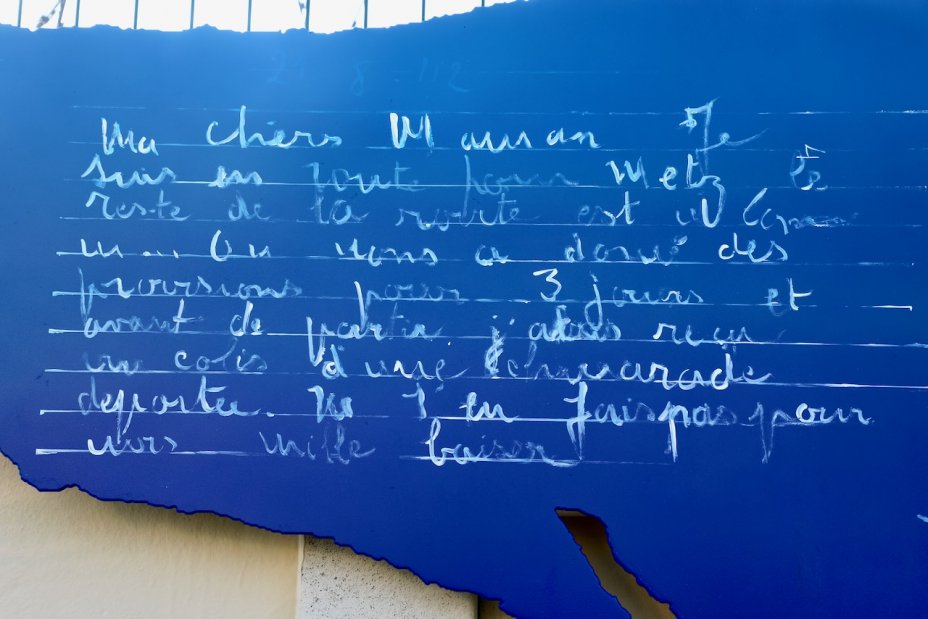 21 8
Ma chers Maman Je
suis en route pour Metz le
reste de la route est
On nous a donné des
provisions pour 3 jours et
avant de partir j'
un colis d'une
deportée. Ne t'en fais pas pour
mille baiser